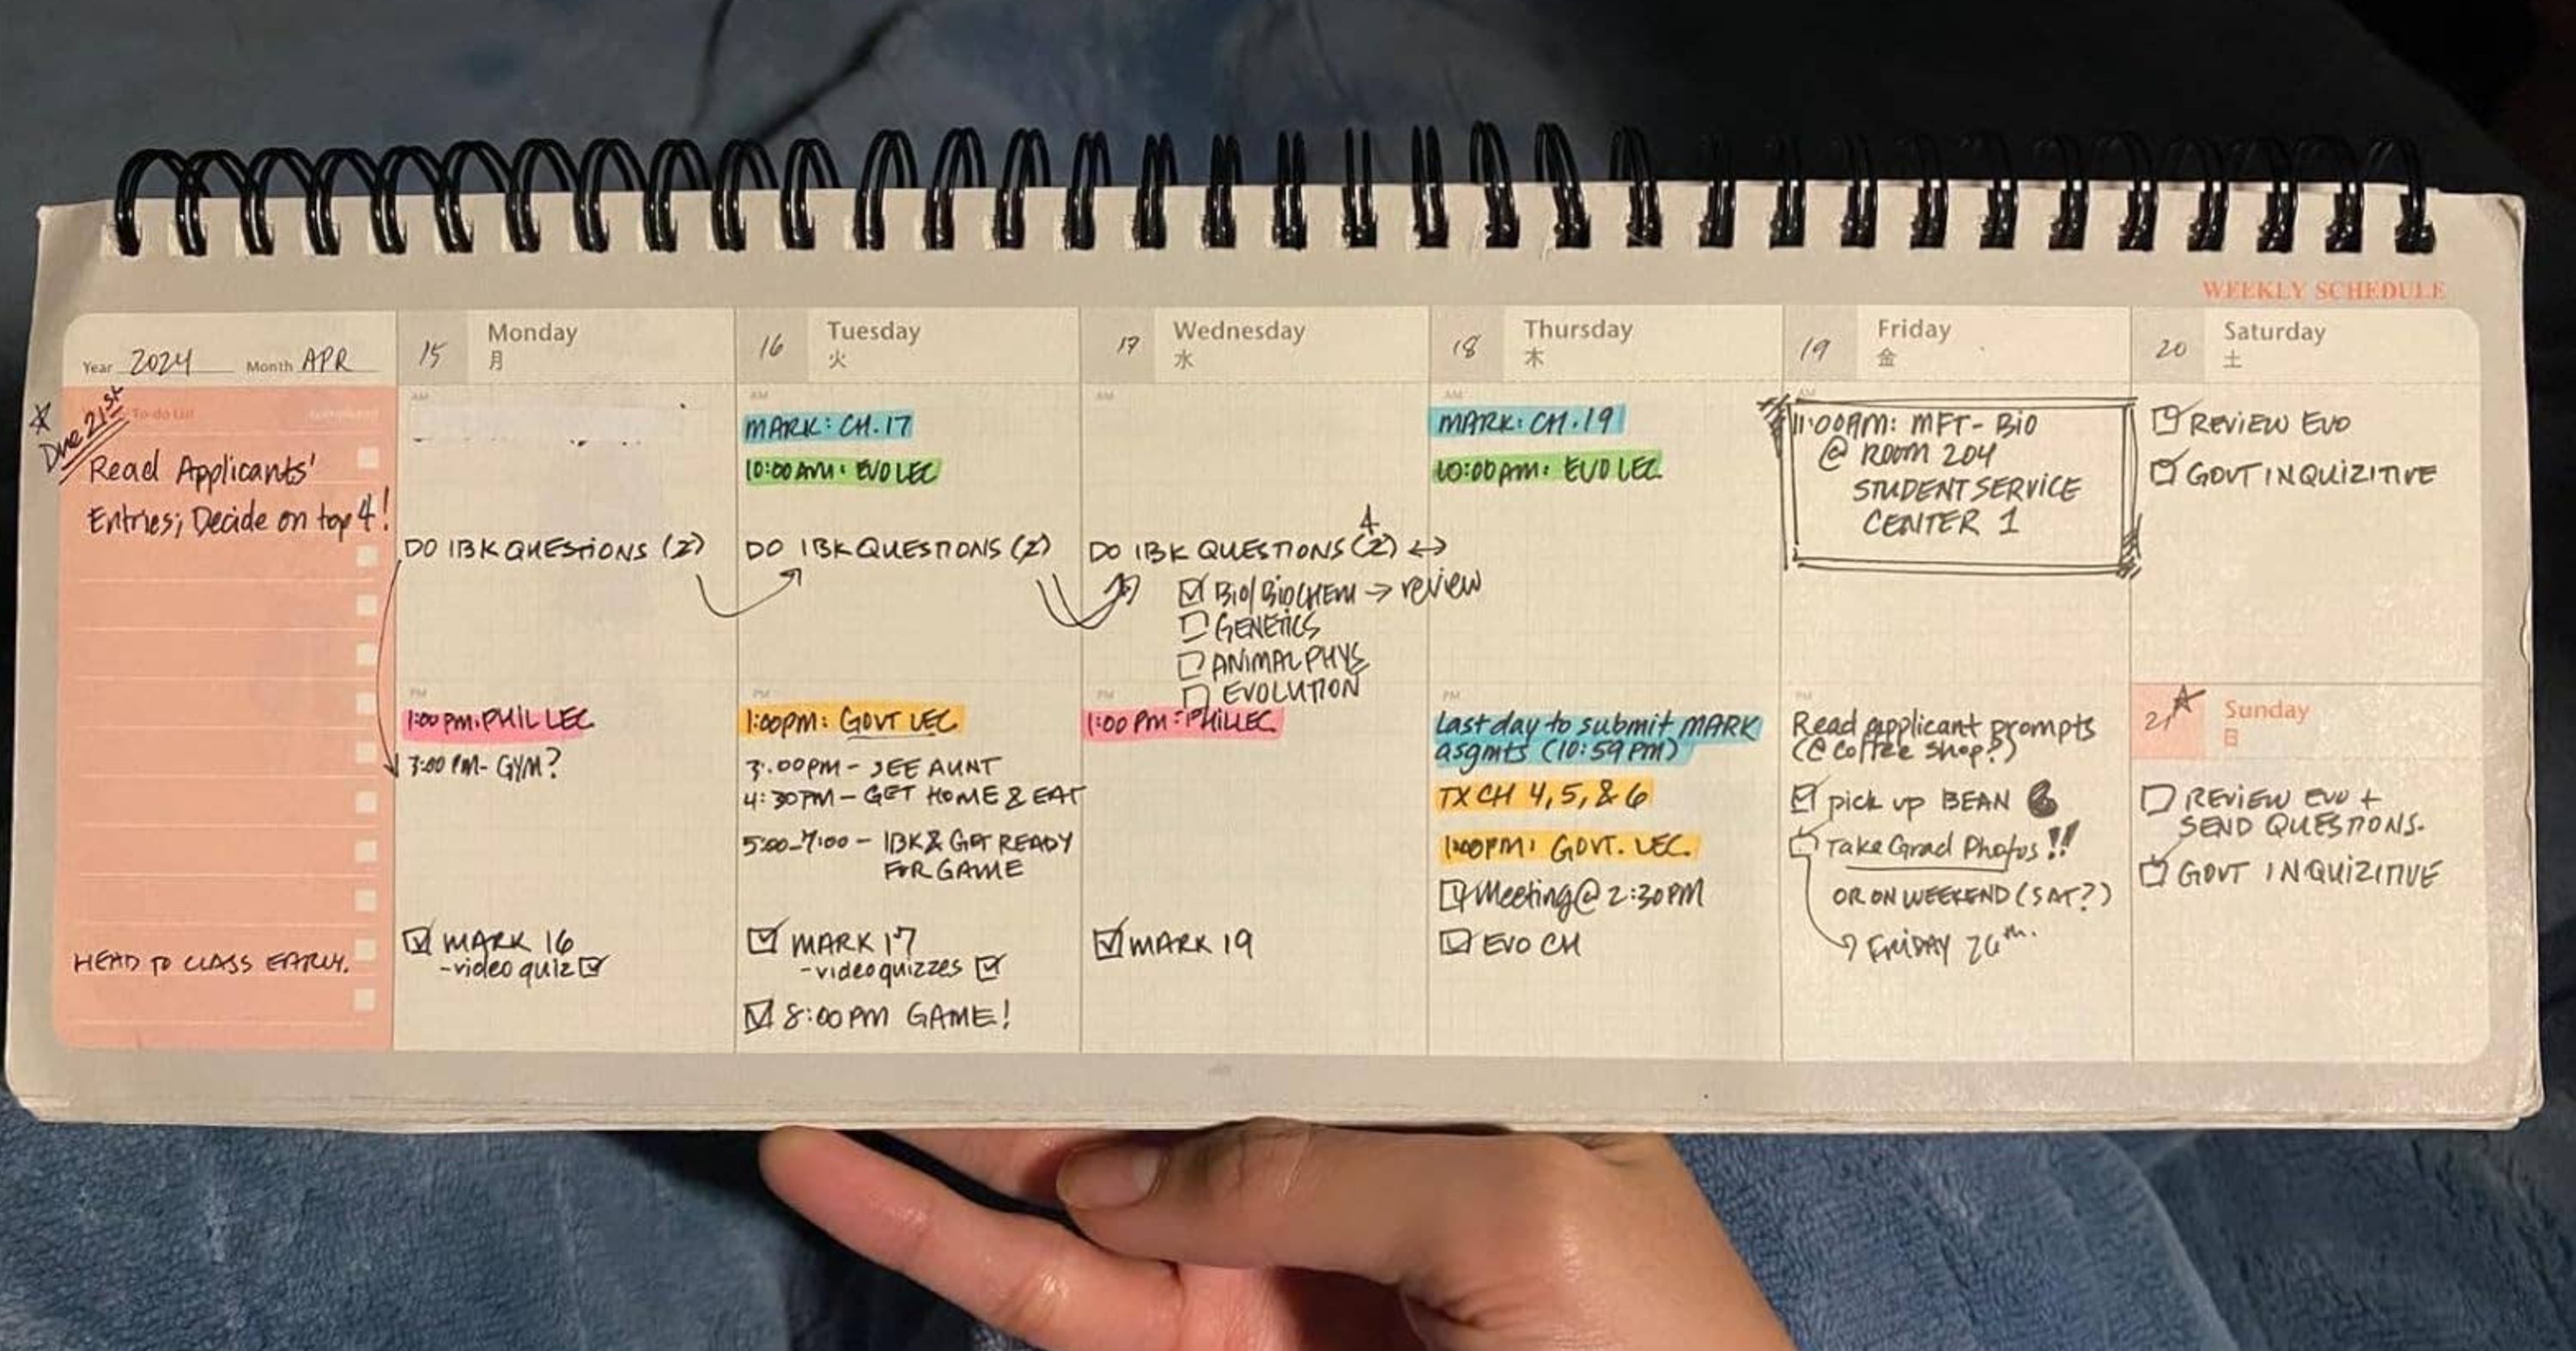 WEEKLY SCHEDULE
Year 2024 Month APR
Due 21st
To-do List
Read Applicants'
Entries; Decide on top 4!
HEAD TO CLASS EARLY.
15 Monday
月
AM
DO IBK QUESTIONS (2)
PM
1:00 PM: PHIL LEC
3:00 PM- GYM?
MARK 16
-video quiz
16 Tuesday
火
AM
MARK: CH.17
10:00 AM: EVO LEC
DO IBK QUESTIONS (2)
PM
1:00PM: GOVT LEC
3:00PM- SEE AUNT
4:30PM- GET HOME & EAT
5:00-7:00- IBK & GET READY
FOR GAME
MARK 17
-video quizzes
8:00 PM GAME!
17 Wednesday
水
AM
4
DO IBK QUESTIONS (2) ↔
BIO/BIOCHEM → review
GENETICS
ANIMAL PHYS
EVOLUTION
PM
1:00 PM: PHIL LEC
MARK 19
18 Thursday
木
AM
MARK: CH.19
10:00AM: EVO LEC
PM
Last day to submit MARK
asgmts (10:59 PM)
TX CH 4, 5, & 6
1:00PM: GOVT. LEC.
Meeting @ 2:30PM
EVO CH
19 Friday
金
AM
11:00AM: MFT- BIO
@ ROOM 204
STUDENT SERVICE
CENTER 1
PM
Read applicant prompts
(@ coffee shop?)
pick up BEAN
Take Grad Photos!!
OR ON WEEKEND (SAT?)
FRIDAY 26th.
20 Saturday
土
REVIEW EVO
GOVT INQUIZITIVE
21 Sunday
日
REVIEW EVO +
SEND QUESTIONS.
GOVT INQUIZITIVE